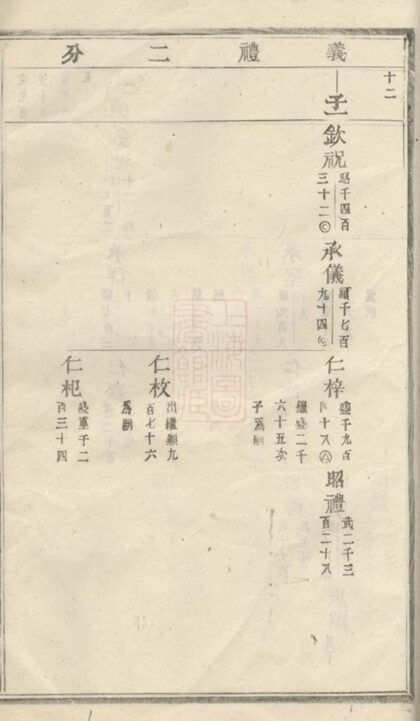 義禮二分
十二
子一
欽祝
昭千四百
三十二
承儀
顯千七百
九十四
仁梓
盛千九百
四十八
繼盛二千
六十五次
子爲嗣
昭禮
武二千三
百二十八
仁枚
出繼顯九
百七十六
爲嗣
仁杞
盛重千二
百三十四
上海圖
書館藏